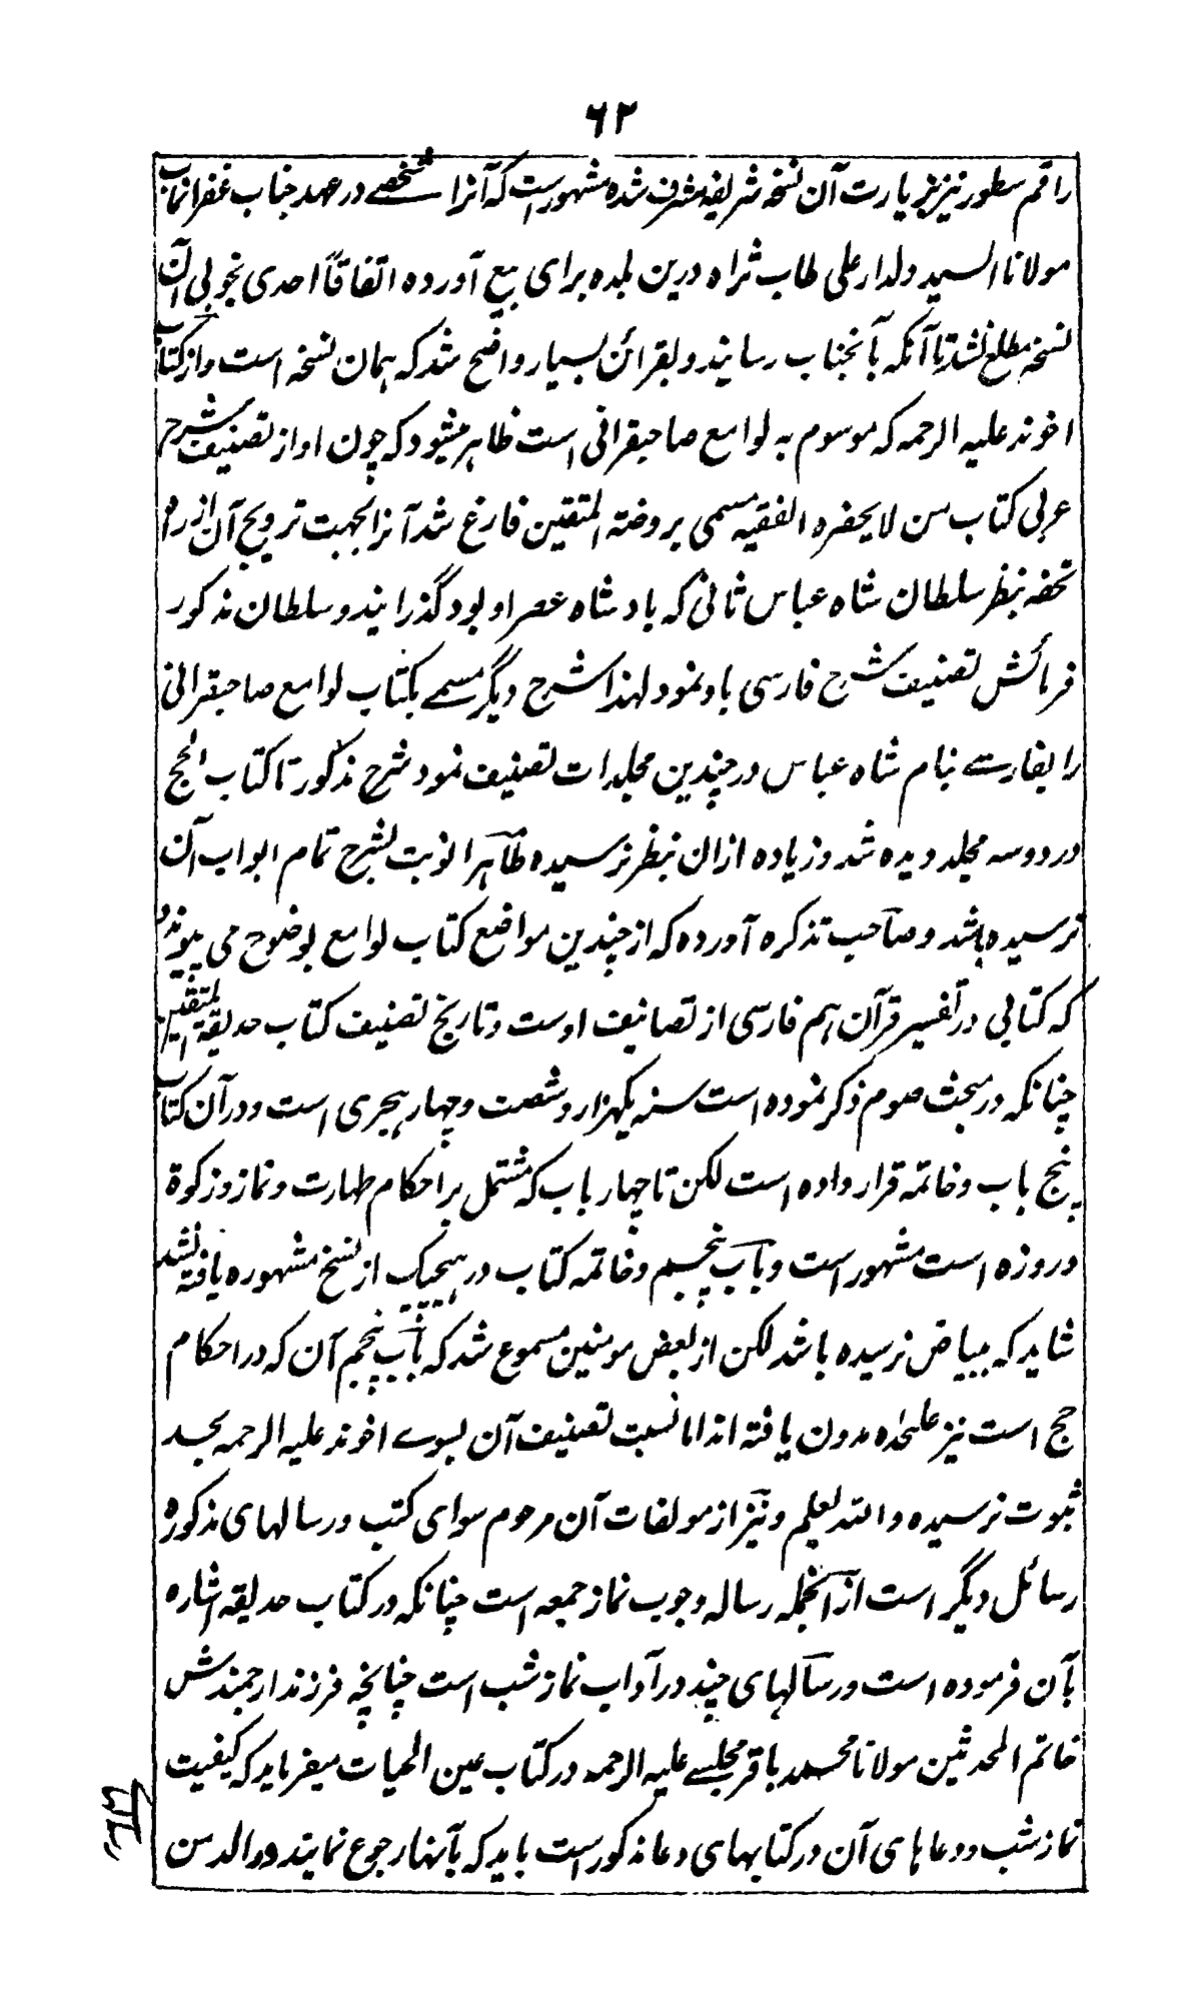 ۶۲
راقم سطور نیز بزیارت آن نسخه شریفه مشرف شده مشهورست که آنرا شخصے در عهد جناب غفرانمآب
مولانا السید دلدار علی طاب ثراه درین بلده برای بیع آورده اتفاقاً احدی بخوبی آن
نسخه مطلع نشد تا آنکه بآنجناب رسانید و بقرائن بسیار واضح شد که همان نسخه است و از کتاب
اخوند علیه الرحمه که موسوم به لوامع صاحبقرانی است ظاهر میشود که چون او از تصنیف شرح
عربی کتاب من لا یحضره الفقیه مسمی بروضة المتقین فارغ شد آنرا بجهت ترویج آن از رو
تحفه بنظر سلطان شاه عباس ثانی که بادشاه عصر او بود گذرانید و سلطان مذکور
فرمائش تصنیف شرح فارسی باو نمود لهذا شرح دیگر مسمے بکتاب لوامع صاحبقرانی
را بفارسے بنام شاه عباس در چندین مجلدات تصنیف نمود شرح مذکور تا کتاب الحج
در دو سه مجلد دیده شد و زیاده ازان بنظر نرسیده ظاهرا نوبت بشرح تمام ابواب آن
نرسیده باشد و صاحب تذکره آورده که از چندین مواضع کتاب لوامع بوضوح می پیوندد
که کتابی در تفسیر قرآن بهم فارسی از تصانیف اوست و تاریخ تصنیف کتاب حدیقة المتقین
چنانکه در مبحث صوم ذکر نموده است سنه یکهزار و شصت و چهار هجری است و در آن کتاب
پنج باب و خاتمه قرار داده است لکن تا چهار باب که مشتمل بر احکام طهارت و نماز و زکوة
و روزه است مشهور است و باب پنجم و خاتمه کتاب در هیچیک از نسخ مشهوره یافته نشد
شاید که ببیاض نرسیده باشد لکن از بعض مومنین مسموع شد که باب پنجم آن که در احکام
حج است نیز علحده مدون یافته اند اما نسبت تصنیف آن بسوے اخوند علیه الرحمه بحد
ثبوت نرسیده و الله یعلم و نیز از مولفات آن مرحوم سوای کتب و رسالهای مذکوره
رسائل دیگر است از آنجمله رساله وجوب نماز جمعه است چنانکه در کتاب حدیقه اشاره
بآن فرموده است و رسالهای چند در آداب نماز شب است چنانچه فرزند ارجمندش
خاتم المحدثین مولانا محمد باقر مجلسے علیه الرحمه در کتاب عین الحیات میفرماید که کیفیت
نماز شب و دعاهای آن در کتابهای دعا مذکور است باید که بآنها رجوع نمایند و والد من